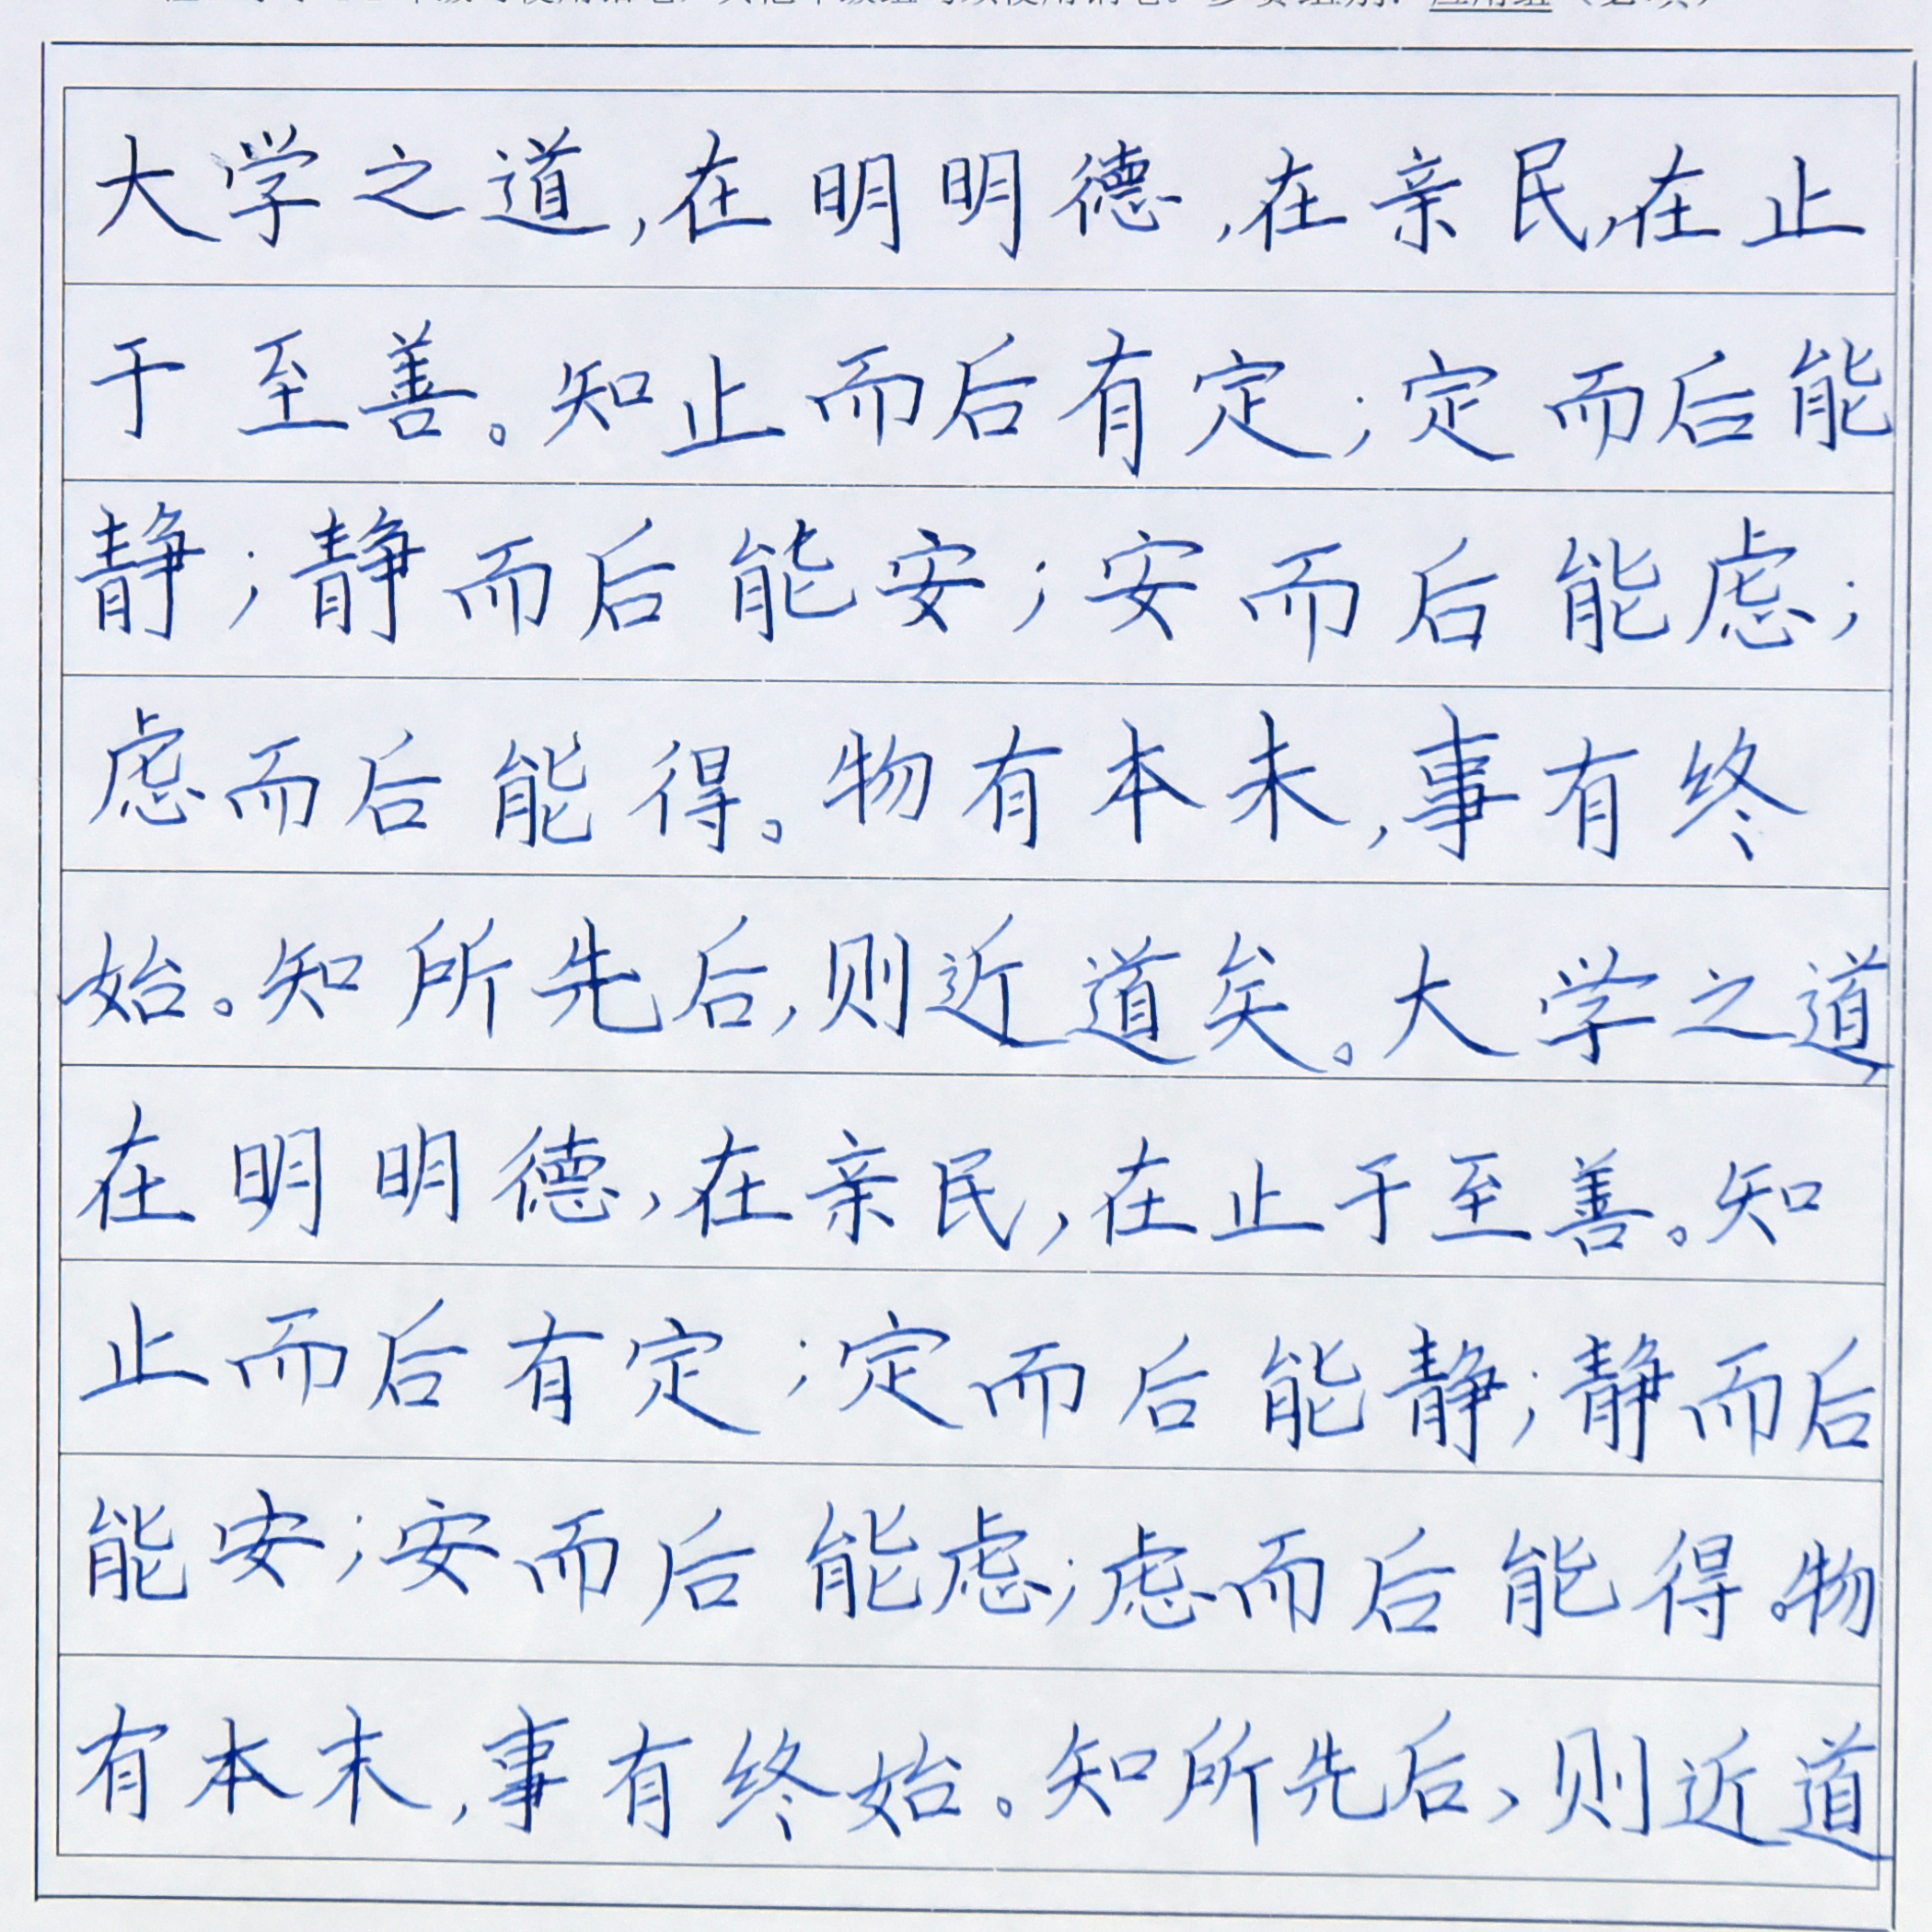 大学之道,在明明德,在亲民,在止
于至善。知止而后有定;定而后能
静;静而后能安;安而后能虑;
虑而后能得。物有本末,事有终
始。知所先后,则近道矣。大学之道
在明明德,在亲民,在止于至善。知
止而后有定;定而后能静;静而后
能安;安而后能虑;虑而后能得。物
有本末,事有终始。知所先后,则近道